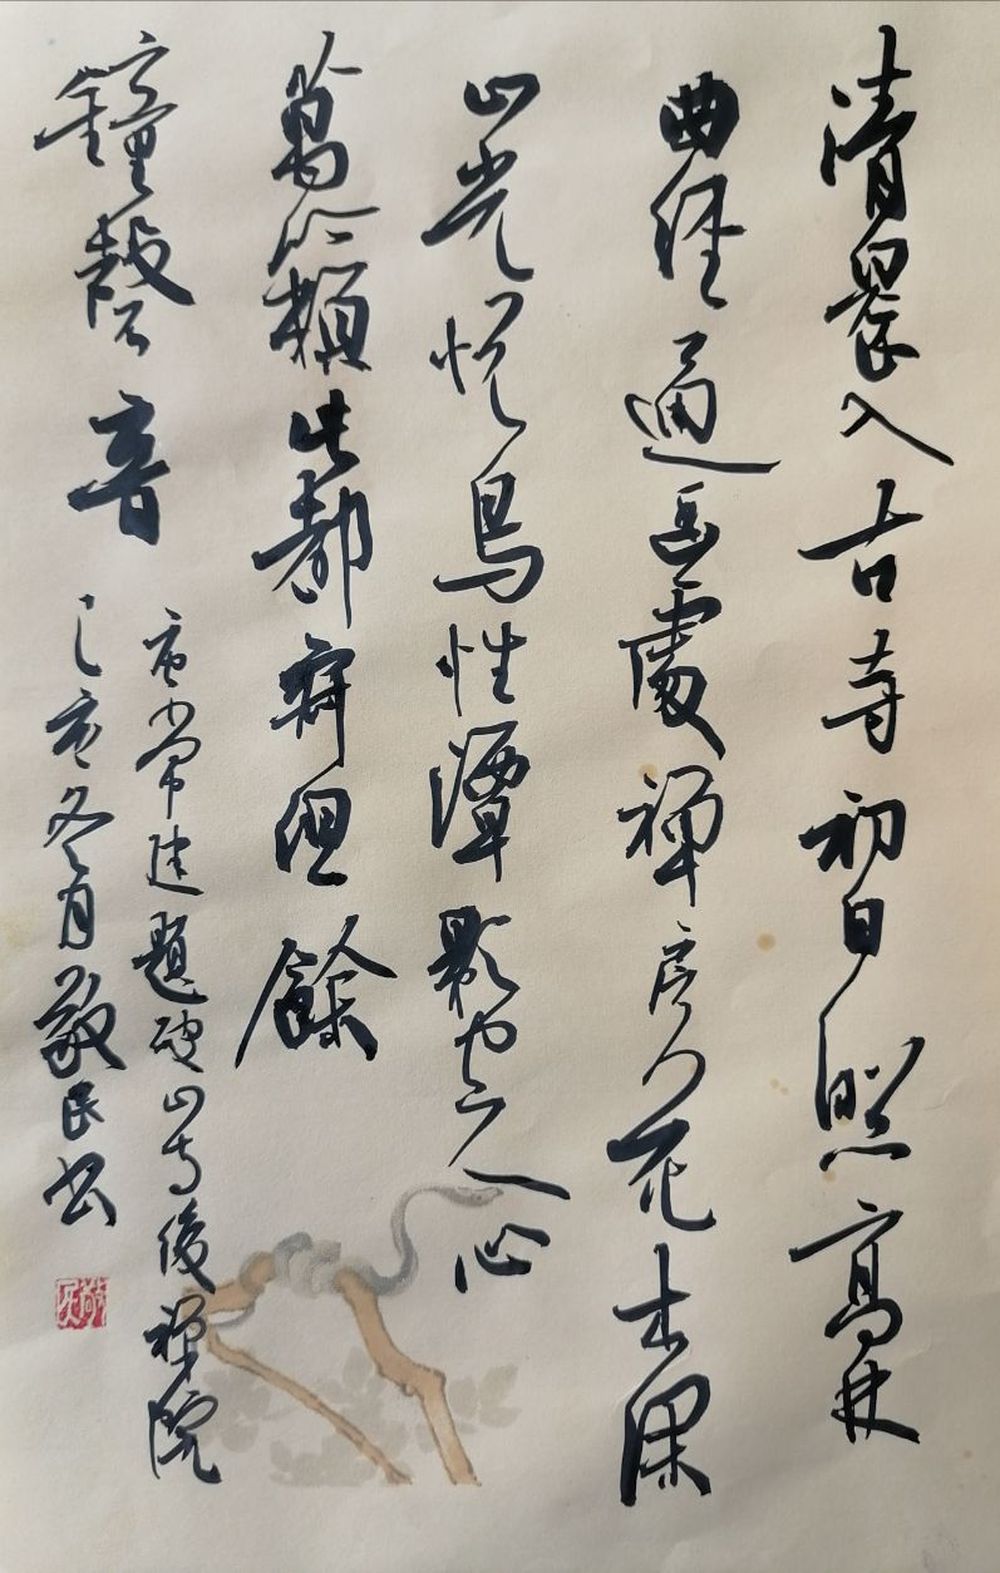 清晨入古寺初日照高林
曲径通幽處禅房花木深
山光悦鸟性潭影空人心
萬籟此都寂但餘
鐘磬音
唐常建題破山寺後禅院
己亥冬月敬民书